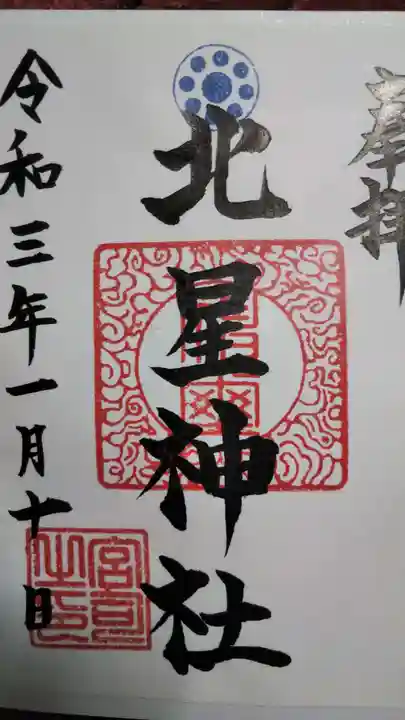 奉拝
北星神社
令和三年一月十日
宮司之印